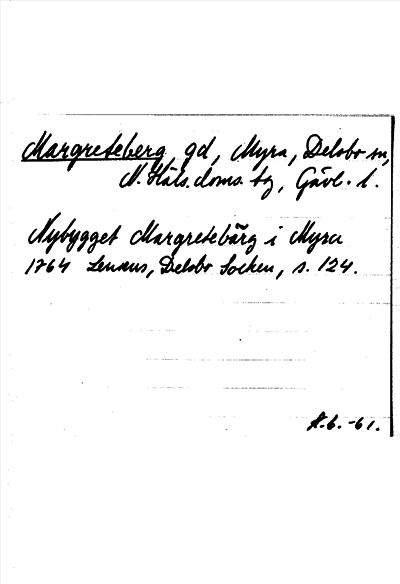 Margreteberg gd, Myra, Delsbo sn,
N. Häls. doms. tg, Gävl. l.
Nybygget Margretebärg i Myra
1764 Lenæus, Delsbo Socken, s. 124.
-61.